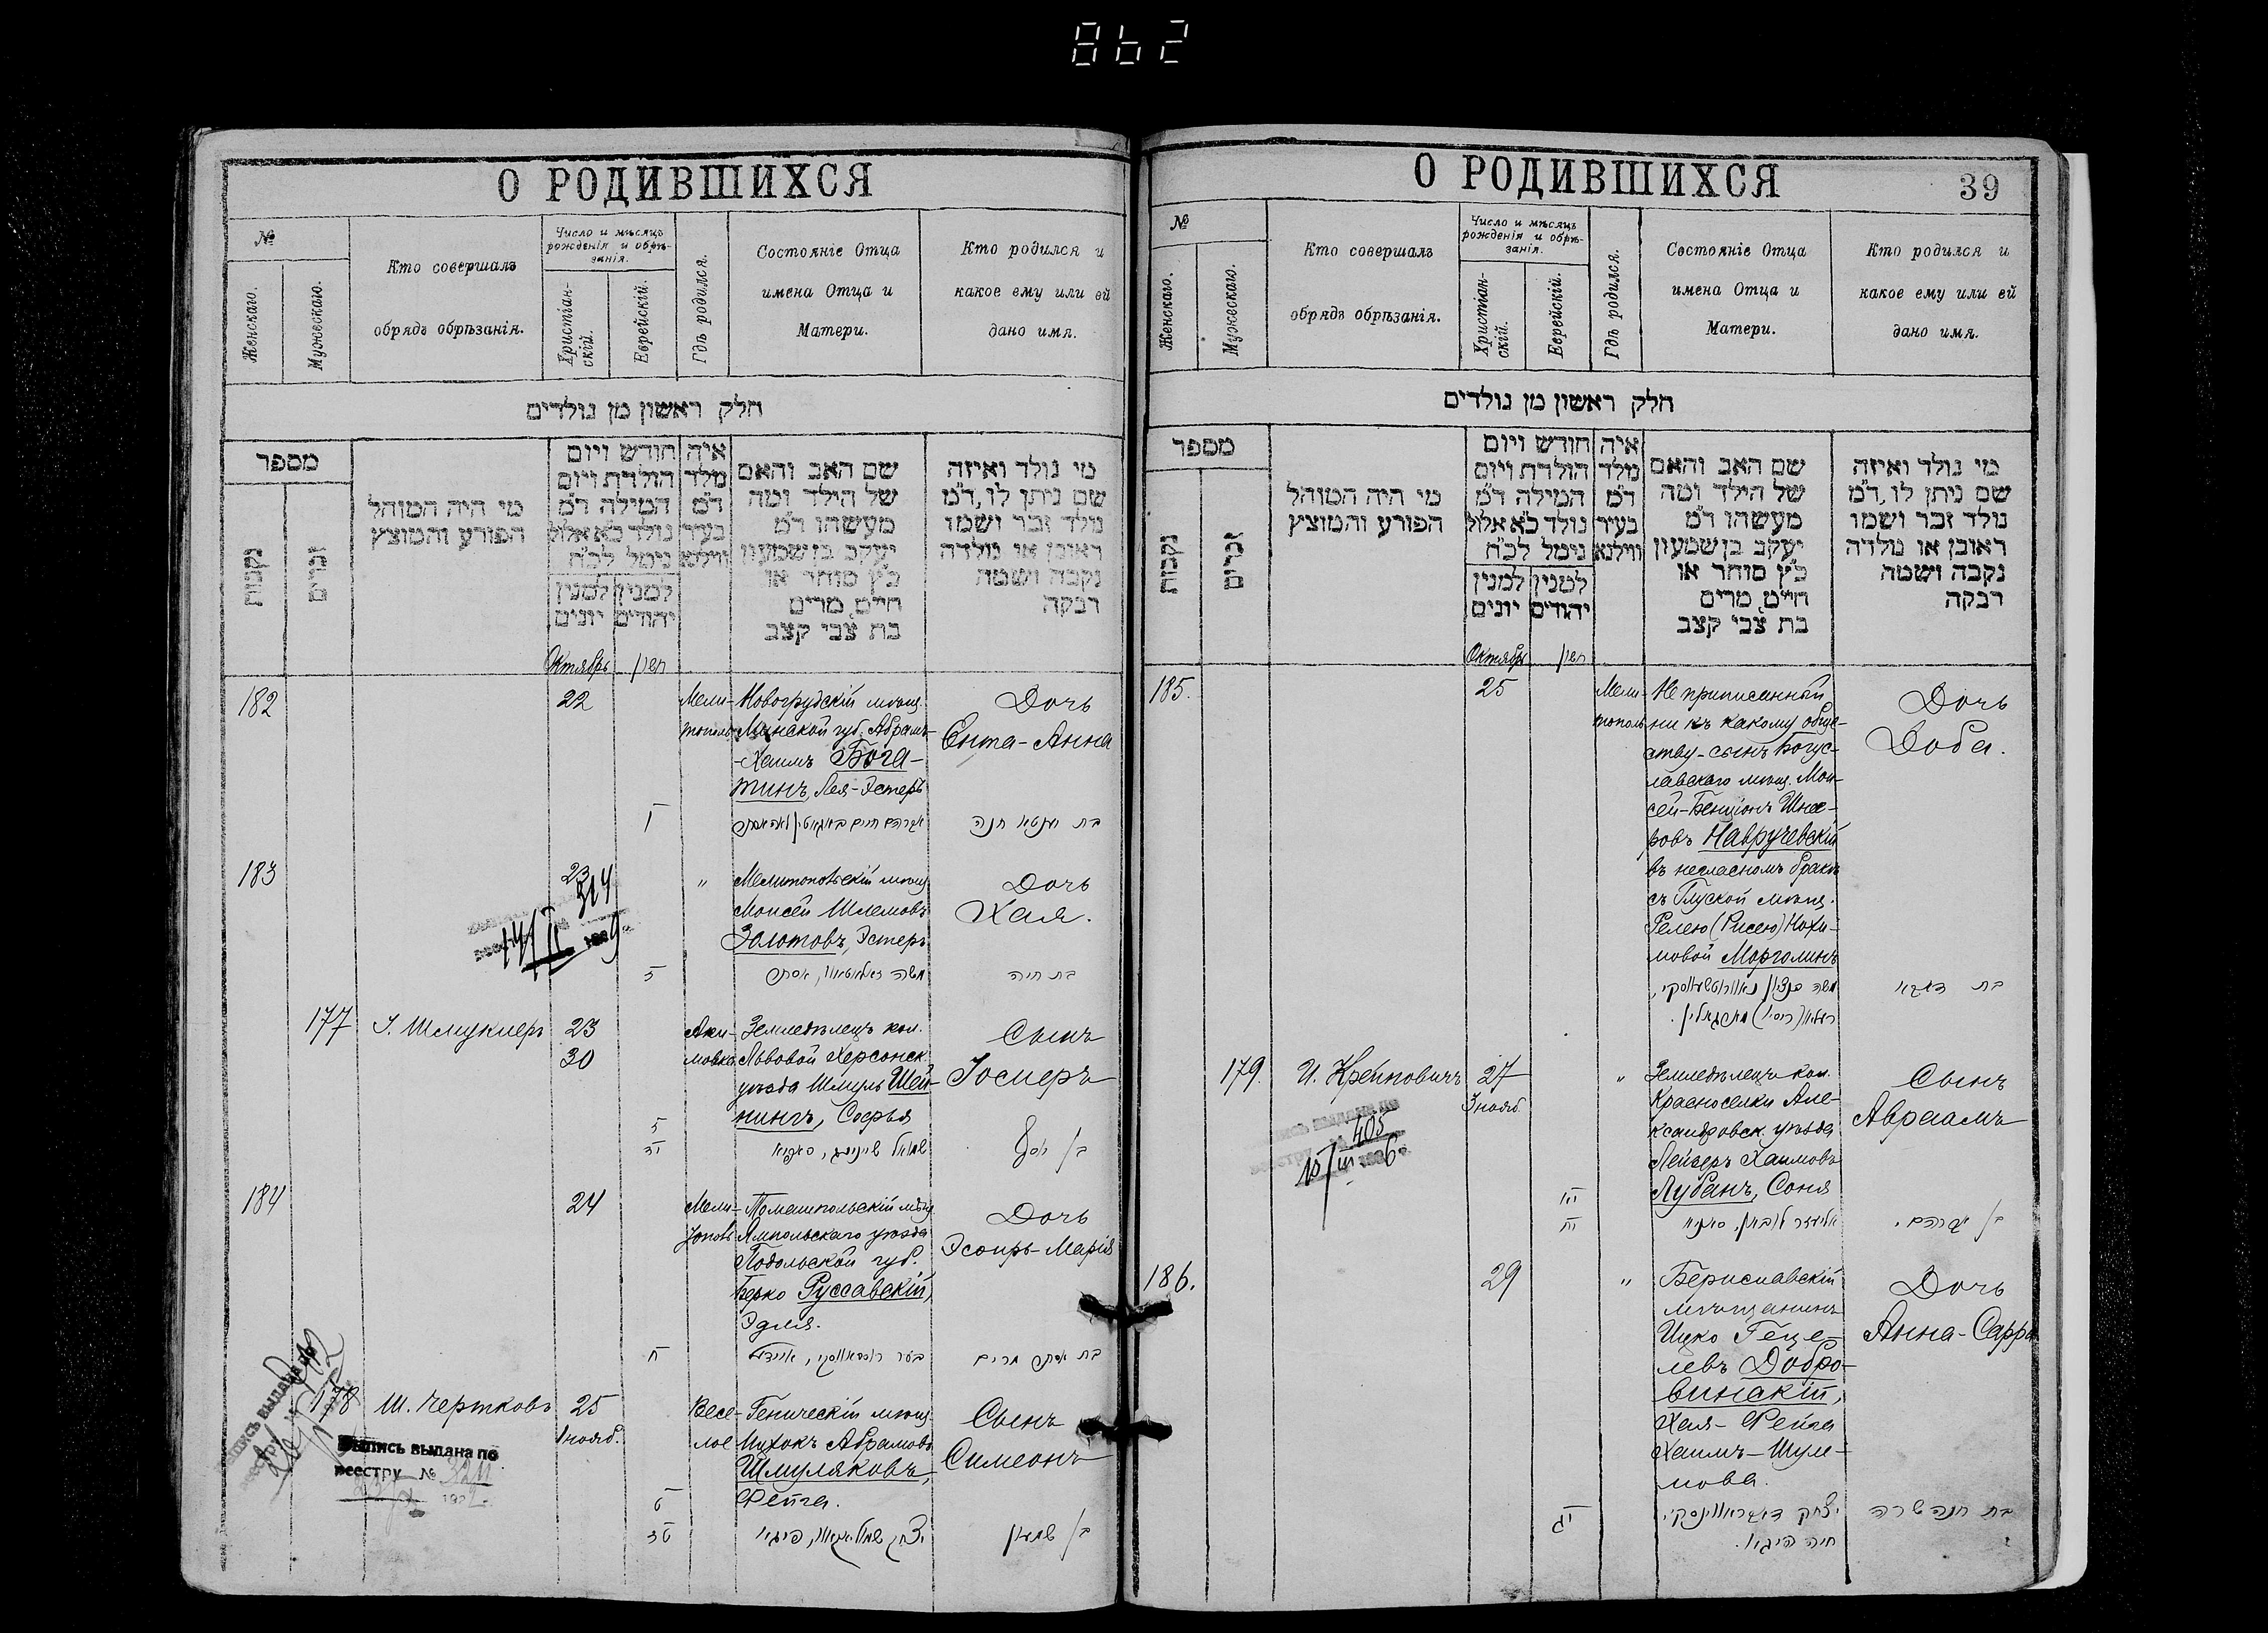 862
О РОДИВШИХСЯ
№
Женскаго.
Мужескаго.
Кто совершалъ
обрядъ обрѣзанія.
Число и мѣсяцъ
рожденія и обрѣ-
занія.
Христіан-
скій.
Еврейскій.
Гдѣ родился.
Состояніе Отца
имена Отца и
Матери.
Кто родился и
какое ему или ей
дано имя.
חלק ראשון מן נולדים
מספר
נקבות
זכרים
מי היה המוהל
הפורע והמוצץ
חודש ויום
הולדת ויום
המילה ד״מ
נולד כ״א אלול
נימל לכ״ח
למנין למנין
יהודים יונים
איה
מלד
ד״מ
בעיר
ווילנא
שם האב והאם
של הילד ומה
מעשהו ד״מ
יעקב בן שמעון
כ״ץ סוחר או
חיים, מרים
בת צבי קצב
מי נולד ואיזה
שם ניתן לו, ד״מ
נולד זכר ושמו
ראובן או נולדה
נקבה ושמה
רבקה
Октябрь
חשון
182
22
Мели-
тополь
Новогрудскій мѣщ.
Минской губ. Абрамъ-
-Хаимъ Бога-
тинъ, Лея-Эстеръ
Дочь
Ента-Анна
ו
בת יענטא חנה
183
23
"
Мелитопольскій мѣщ.
Моисей Шлемовъ
Золотовъ, Эстеръ
Дочь
Хая.
314
ז
משה זאלאטאוו, אסתר
בת חיה
177
І. Шмуклеръ
23
30
Аки-
мовка
Земледѣлецъ кол.
Львовой Херсонск.
уѣзда Шмуль Шей-
нингъ, Софья
Сынъ
Іосифъ
ז
יד
בן יוסף
184
24
Мели-
тополь
Томашпольскій мѣщ.
Ямпольскаго уѣзда
Подольской губ.
Берко Руссавскій,
Эдля.
Дочь
Эсѳирь-Марія
ח
בת אסתר מרים
178
Ш. Чертковъ
25
1 нояб.
Весе-
лое
Геническій мѣщ.
Ицхокъ Абрамовъ
Шмуляковъ,
Фейга.
Сынъ
Симеонъ
Выпись выдана по
реестру №
ט
טז
בן שמעון
О РОДИВШИХСЯ
39
№
Женскаго.
Мужескаго.
Кто совершалъ
обрядъ обрѣзанія.
Число и мѣсяцъ
рожденія и обрѣ-
занія.
Христіан-
скій.
Еврейскій.
Гдѣ родился.
Состояніе Отца
имена Отца и
Матери.
Кто родился и
какое ему или ей
дано имя.
חלק ראשון מן נולדים
מספר
נקבות
זכרים
מי היה המוהל
הפורע והמוצץ
חודש ויום
הולדת ויום
המילה ד״מ
נולד כ״א אלול
נימל לכ״ח
למנין למנין
יהודים יונים
איה
מלד
ד״מ
בעיר
ווילנא
שם האב והאם
של הילד ומה
מעשהו ד״מ
יעקב בן שמעון
כ״ץ סוחר או
חיים, מרים
בת צבי קצב
מי נולד ואיזה
שם ניתן לו, ד״מ
נולד זכר ושמו
ראובן או נולדה
נקבה ושמה
רבקה
Октябрь
חשון
185.
25
Мели-
тополь
Не приписанный
ни къ какому обще-
ству-сынъ Богус-
лавскаго мѣщ. Мои-
сей-Бенціонъ
Навручевскій
въ негласномъ бракѣ
съ Глуской мѣщ.
Релею (Рисею) Нохи-
мовой Морголинъ
Дочь
Доба.
179.
И. Крейновичъ
27
3 нояб.
"
Земледѣлецъ кол.
Красноселки Але-
ксандровск. уѣзда
Лейзеръ Хаимовъ
Лубанъ, Соня
Сынъ
Авраамъ
405
יא
יח
בן אברהם.
186.
29
"
Бериславскій
мѣщанинъ
Ицко Геце-
левъ Добро-
винскій,
Хая-Фейга
Хаимъ-Шуле-
мова.
Дочь
Анна-Сарра
יג
בת חנה שרה
חיה פייגא.